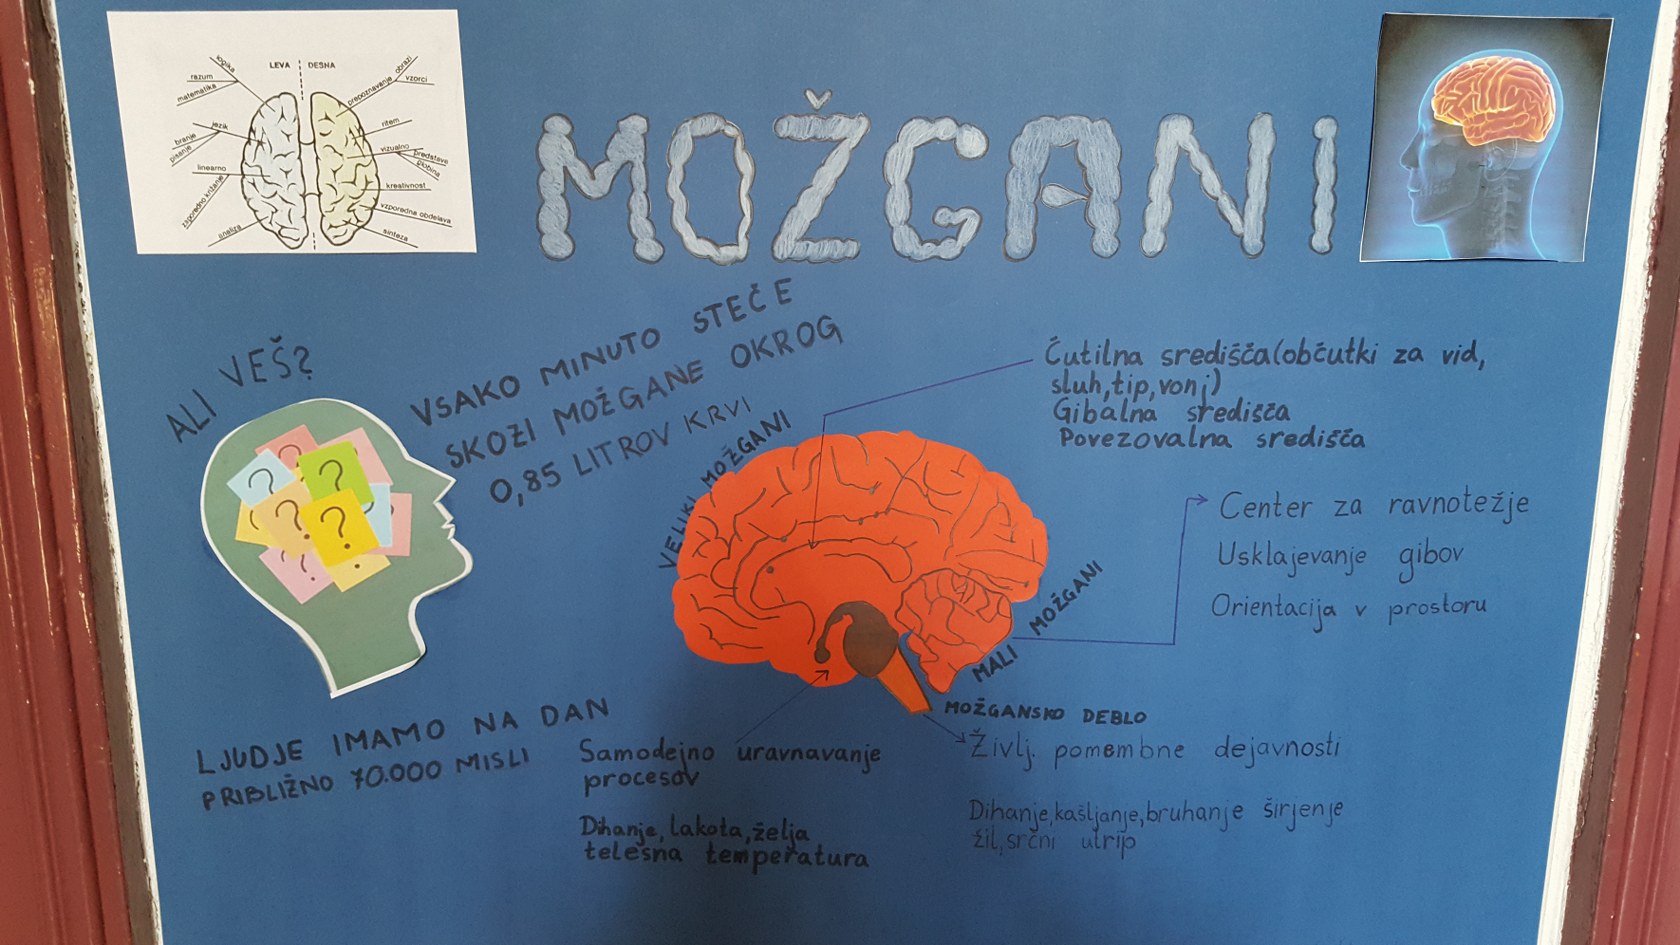 LEVA DESNA
logika
razum
matematika
jezik
branje
pisanje
linearno
zaporedno križanje
linaliza
obrazi
prepoznavanje
vzorci
ritem
vizualno
predstave
globina
kreativnost
vzporedna obdelava
sinteza
MOŽGANI
ALI VEŠ?
VSAKO MINUTO STEČE
SKOZI MOŽGANE OKROG
0,85 LITROV KRVI
? ? ? ?
LJUDJE IMAMO NA DAN
PRIBLIŽNO 70.000 MISLI
VELIKI MOŽGANI
Čutilna središča(občutki za vid,
sluh,tip,vonj)
Gibalna središča
Povezovalna središča
MALI MOŽGANI
Center za ravnotežje
Usklajevanje gibov
Orientacija v prostoru
MOŽGANSKO DEBLO
Življ. pomembne dejavnosti
Dihanje,kašljanje,bruhanje širjenje
žil,srčni utrip
Samodejno uravnavanje
procesov
Dihanje, lakota,želja
telesna temperatura